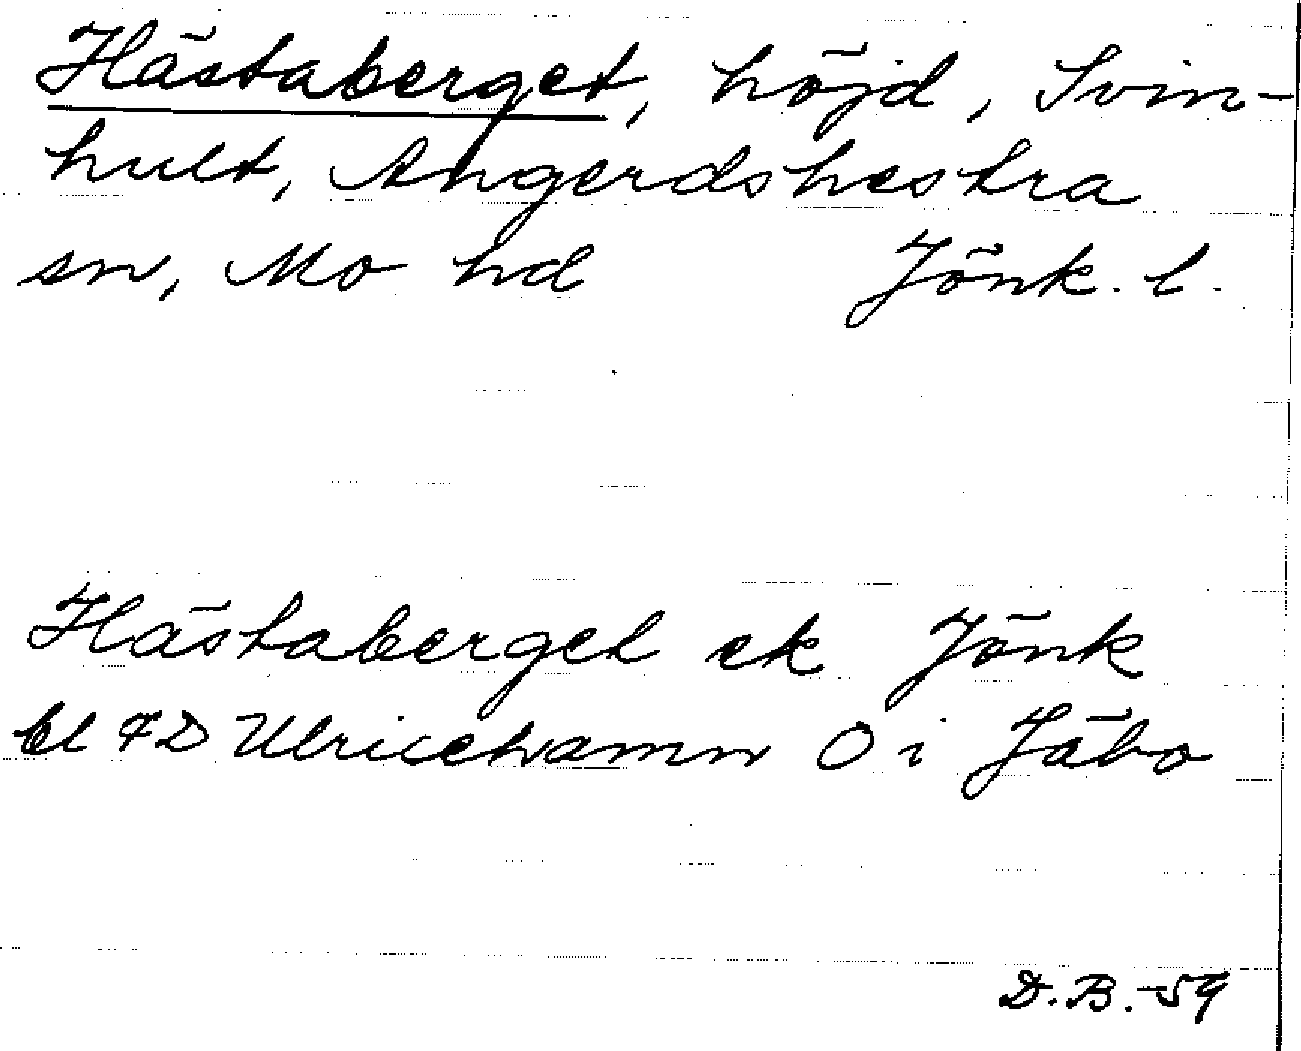 Hästaberget, höjd, Svin-
hult, Angerdshestra
sn, Mo hd Jönk. l.
Hästaberget ek Jönk
bl 7D Ulricehamn O i Jäbo
D.B.-59